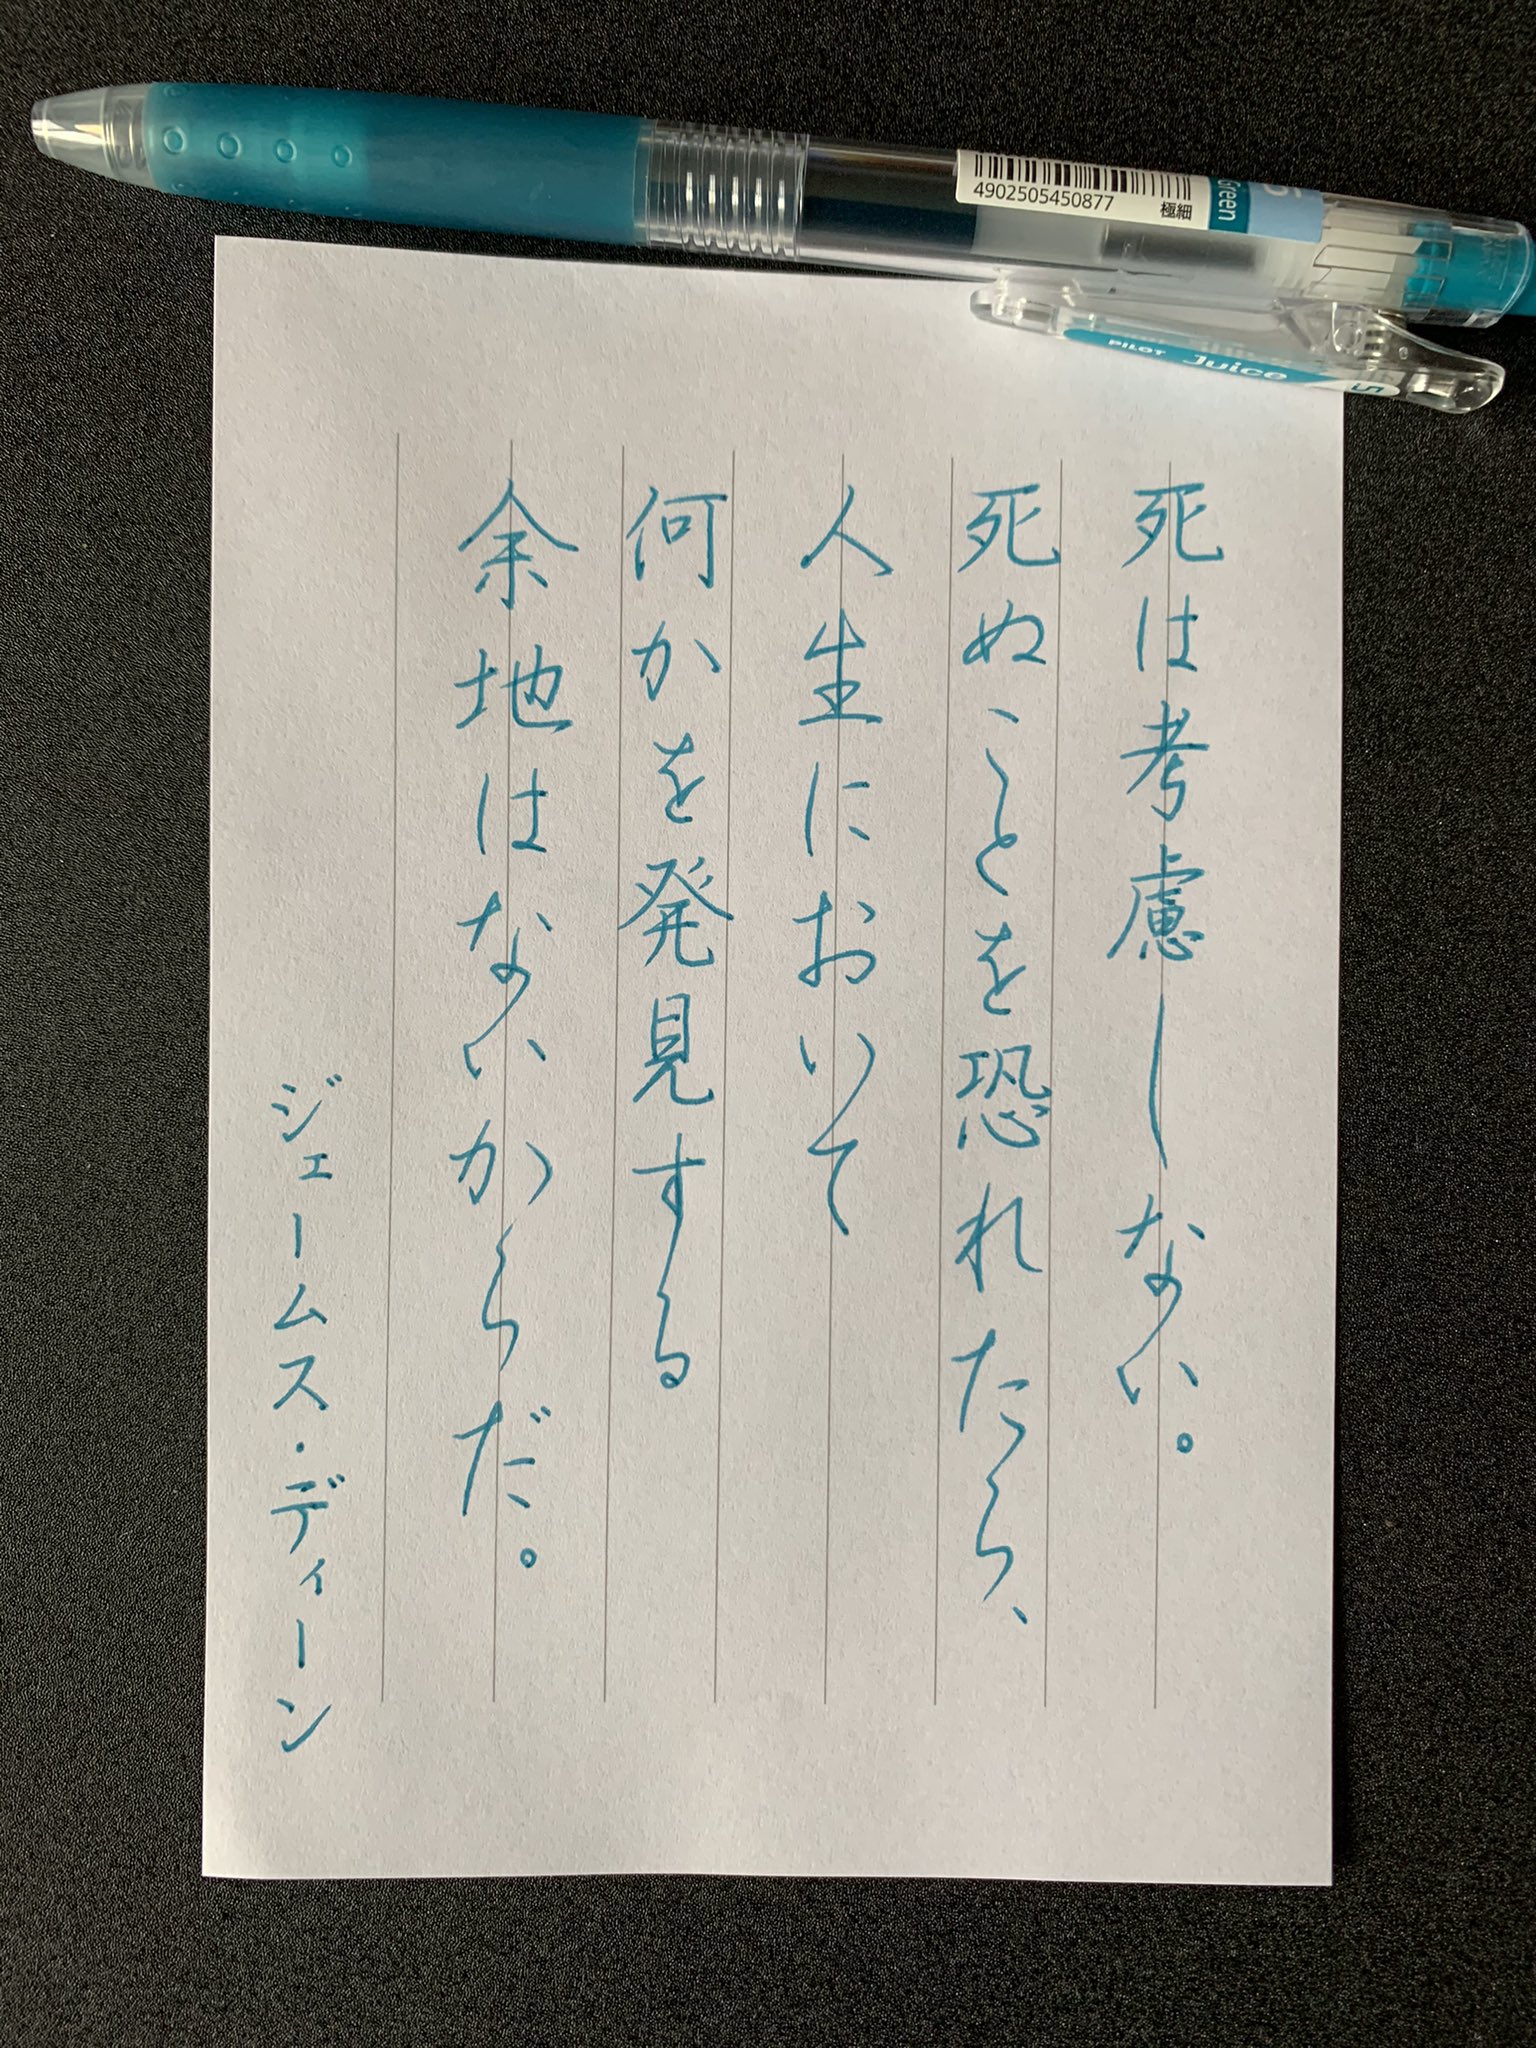 死は考慮しない。
死ぬことを恐れたら、
人生において
何かを発見する
余地はないからだ。
ジェームス・ディーン
4902505450877
極細
Green
5
PILOT Juice
5